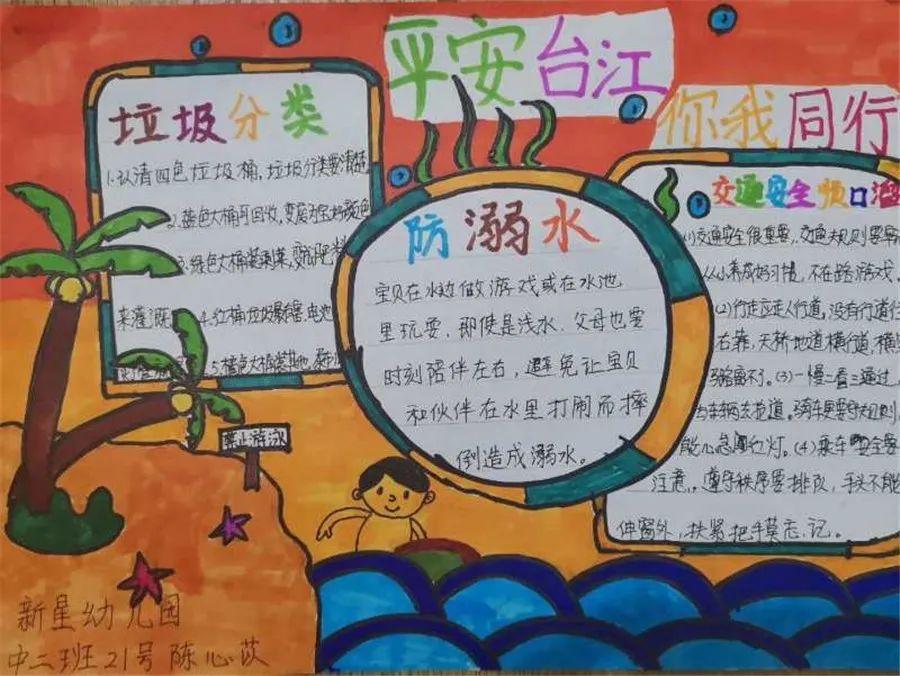 平安台江
你我同行
垃圾分类
1.认清四色垃圾桶,垃圾分类要清楚
2.蓝色大桶可回收,变废为宝
3.绿色大桶装剩菜,
来灌溉 4.红桶垃圾 电池
5.橙色大桶装其他,
防溺水
宝贝在水边做游戏或在水池
里玩耍,即使是浅水,父母也要
时刻陪伴左右,避免让宝贝
和伙伴在水里打闹而摔
倒造成溺水。
交通安全顺口溜
(1)交通安全很重要,交通规则要
从小养成好习惯,不在路游戏。
(2)行走应走人行道,没有行道
右靠,天桥地道横行道,横
(3)一慢二看三通过,
车辆去抢道。骑车更要守规则,
能心急闯红灯。(4)乘车安全要
注意,遵守秩序要排队,手头不能
伸窗外,扶紧把手莫忘记。
禁止游泳
新星幼儿园
中二班21号 陈心苡